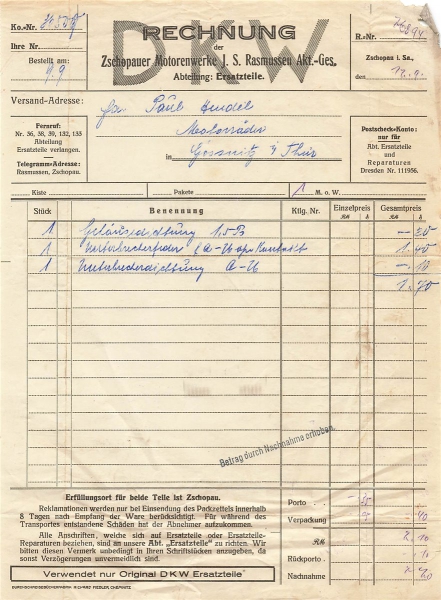 DKW
RECHNUNG
der
Zschopauer Motorenwerke J. S. Rasmussen Akt.-Ges.
Abteilung: Ersatzteile.
Ko.-Nr.
Ihre Nr.
Bestellt am:
9/9
R.-Nr.
Zschopau i. Sa.,
den 12.9.
Versand-Adresse:
Fa. Paul Hendel
Motorräder
in Gössnitz i/Thür
Fernruf:
Nr. 36, 38, 39, 132, 133
Abteilung
Ersatzteile verlangen.
Telegramm-Adresse:
Rasmussen, Zschopau.
Postscheck-Konto:
nur für
Abt. Ersatzteile
und
Reparaturen
Dresden Nr. 111956.
Kiste Pakete 1 M. o. W.
Stück Benennung Ktlg. Nr. Einzelpreis Gesamtpreis
RM ₰ RM ₰
1 Gehäusedichtung 1,5 PS — 20
1 Unterbrecherfeder f. A-U 1.40
1 Unterbrecherdichtung A-U — 10
1.70
Betrag durch Nachnahme erhoben.
Erfüllungsort für beide Teile ist Zschopau.
Reklamationen werden nur bei Einsendung des Packzettels innerhalb
8 Tagen nach Empfang der Ware berücksichtigt. Für während des
Transportes entstandene Schäden hat der Abnehmer aufzukommen.
Alle Anschriften, welche sich auf Ersatzteile oder Ersatzteile-
Reparaturen beziehen, sind an unsere Abt. „Ersatzteile“ zu richten. Wir
bitten diesen Vermerk unbedingt in Ihren Schriftstücken anzugeben, da
sonst Verzögerungen unvermeidlich sind.
Verwendet nur Original DKW Ersatzteile!
Porto
Verpackung
RM 2.10
Rückporto
Nachnahme
DURCHSCHREIBEBÜCHERFABRIK RICHARD FIEDLER CHEMNITZ